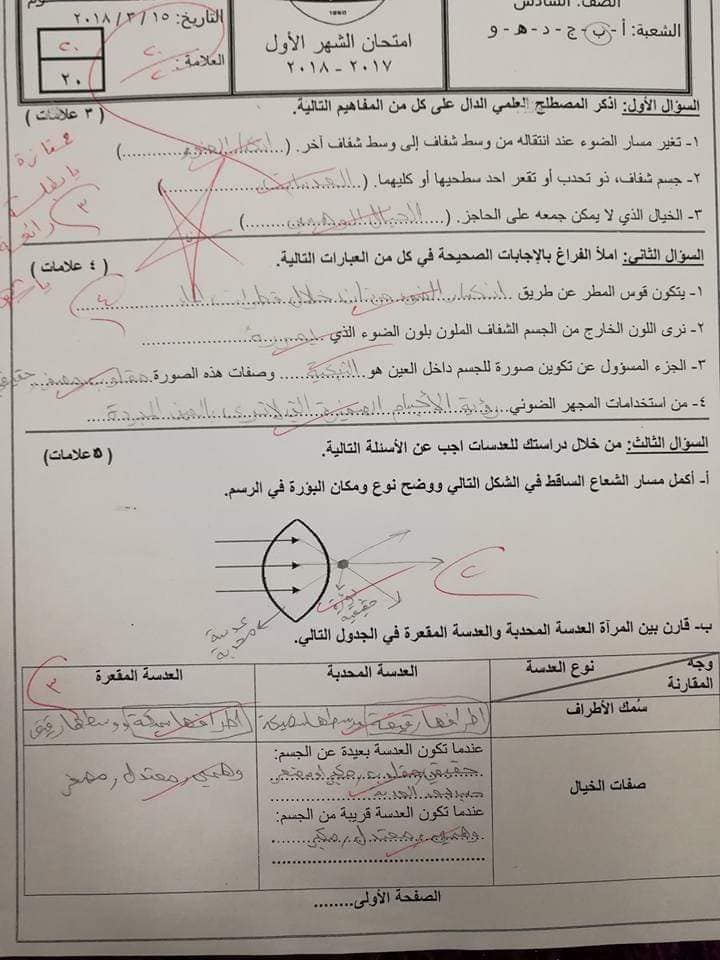 الصف: السادس
الشعبة: أ - ب - ج - د - هـ - و
1980
امتحان الشهر الأول
٢٠١٧ - ٢٠١٨
التاريخ: ١٥ / ٣ / ٢٠١٨
العلامة:
٢٠
٢٠
٢٠
٢٠
السؤال الأول: اذكر المصطلح العلمي الدال على كل من المفاهيم التالية. ( ٣ علامات )
١- تغير مسار الضوء عند انتقاله من وسط شفاف إلى وسط شفاف آخر. (انكسار الضوء)
٢- جسم شفاف، ذو تحدب أو تقعر احد سطحيها أو كليهما. (العدسات)
٣- الخيال الذي لا يمكن جمعه على الحاجز. (الخيال الوهمي)
ممتازة
٣
السؤال الثاني: املأ الفراغ بالإجابات الصحيحة في كل من العبارات التالية. ( ٤ علامات )
٤
١- يتكون قوس المطر عن طريق انكسار الضوء من خلال قطرات الماء
٢- نرى اللون الخارج من الجسم الشفاف الملون بلون الضوء الذي يمرره
٣- الجزء المسؤول عن تكوين صورة للجسم داخل العين هو الشبكية وصفات هذه الصورة مقلوب مصغر حقيقي
٤- من استخدامات المجهر الضوئي رؤية الأجسام الصغيرة التي لا ترى بالعين المجردة
السؤال الثالث: من خلال دراستك للعدسات اجب عن الأسئلة التالية. (٥ علامات)
أ- أكمل مسار الشعاع الساقط في الشكل التالي ووضح نوع ومكان البؤرة في الرسم.
٢
بؤرة
حقيقية
عدسة
محدبة
ب- قارن بين المرآة العدسة المحدبة والعدسة المقعرة في الجدول التالي.
٣
نوع العدسة
وجه المقارنة
العدسة المحدبة
العدسة المقعرة
سُمك الأطراف
اطرافها رقيقة ووسطها سميكة
اطرافها سميكة ووسطها رقيق
صفات الخيال
عندما تكون العدسة بعيدة عن الجسم:
حقيقي مقلوب مكبر او مصغر
عندما تكون العدسة قريبة من الجسم:
وهمي, معتدل, مكبر
وهمي, معتدل, مصغر
الصفحة الأولى........